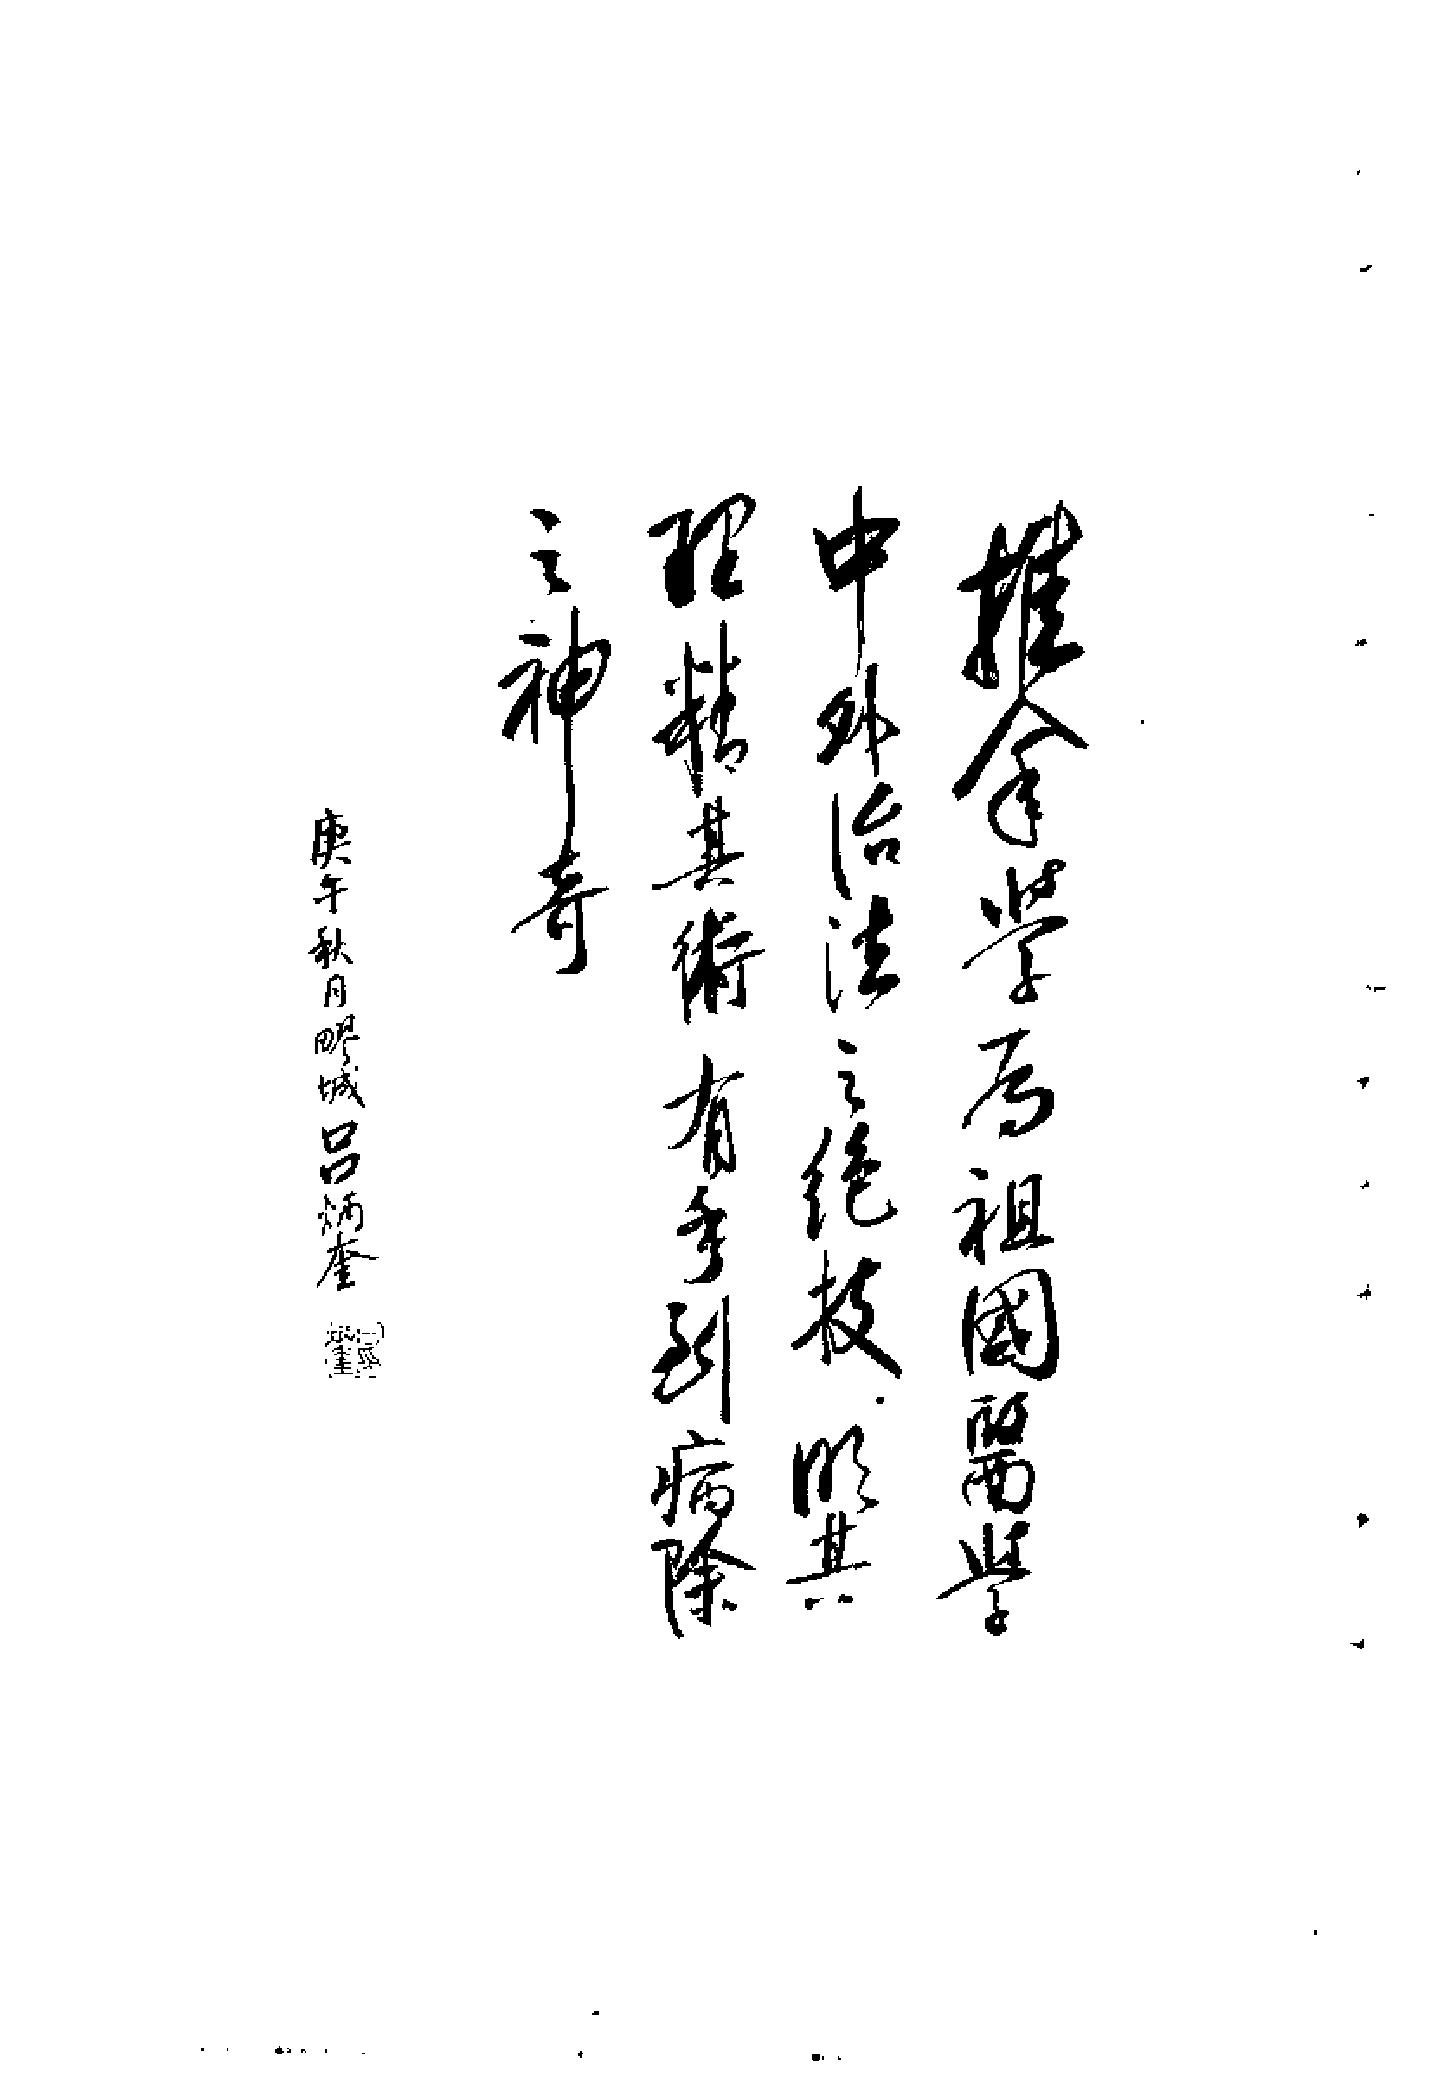 推拿學为祖國醫學
中外治法之绝技.明其
理精其術有手到病除
之神奇
庚午秋月疁城吕炳奎